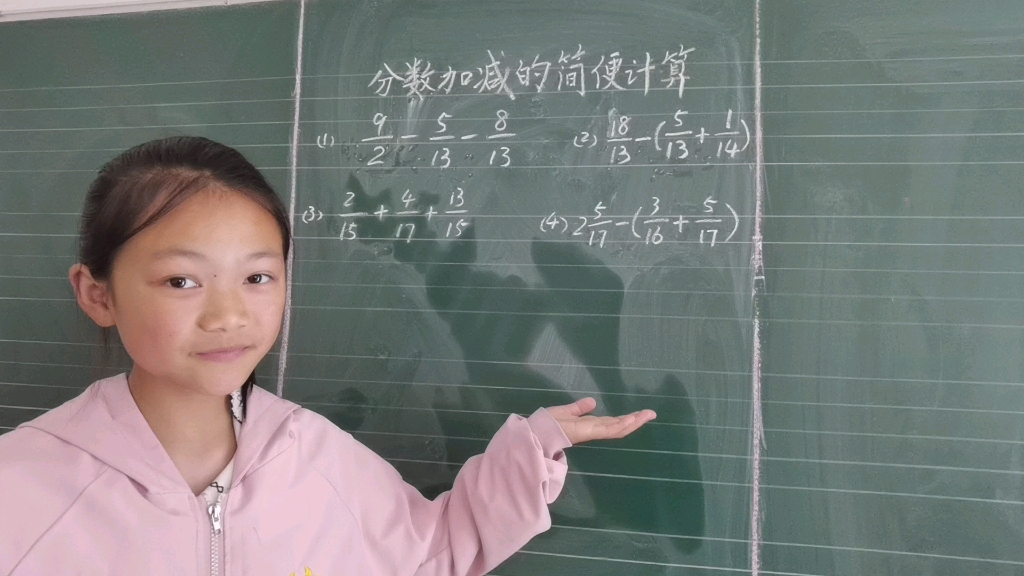 分数加减的简便计算
(1) 9/2 - 5/13 - 8/13 (2) 18/13 - (5/13 + 1/14)
(3) 2/15 + 4/17 + 13/15 (4) 2 5/17 - (3/16 + 5/17)